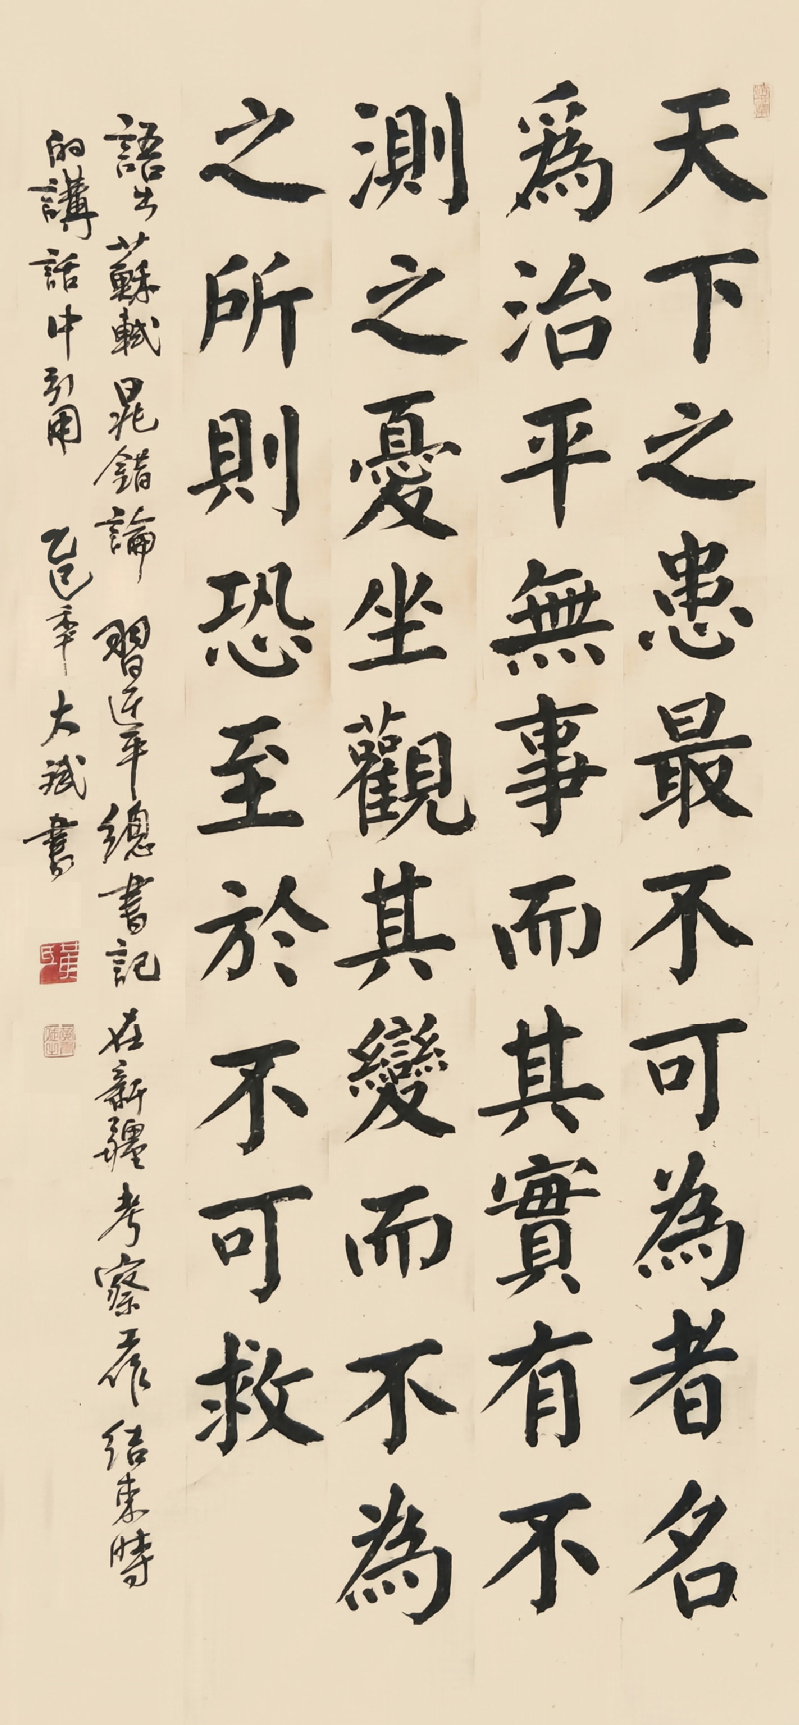 天下之患最不可為者名
爲治平無事而其實有不
測之憂坐觀其變而不為
之所則恐至於不可救
語出蘇軾晁錯論 習近平總書記在新疆考察工作结束時
的講話中引用 乙巳年大斌書